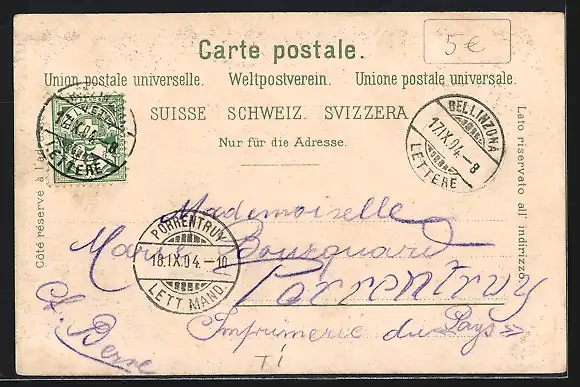 Carte postale.
5 €
Union postale universelle. Weltpostverein. Unione postale universale.
SUISSE SCHWEIZ. SVIZZERA.
Nur für die Adresse.
Côté réservé à l'ad
Lato riservato all indirizzo
HELVETIA
LETTERE
BELLINZONA
17.IX.04.-8
LETTERE
PORRENTRUY
18.IX.04.-10
LETT. MAND.
Mademoiselle
Marie Bourquard
Porrentruy
Imprimerie du Pays »
Ct. Berne
TI